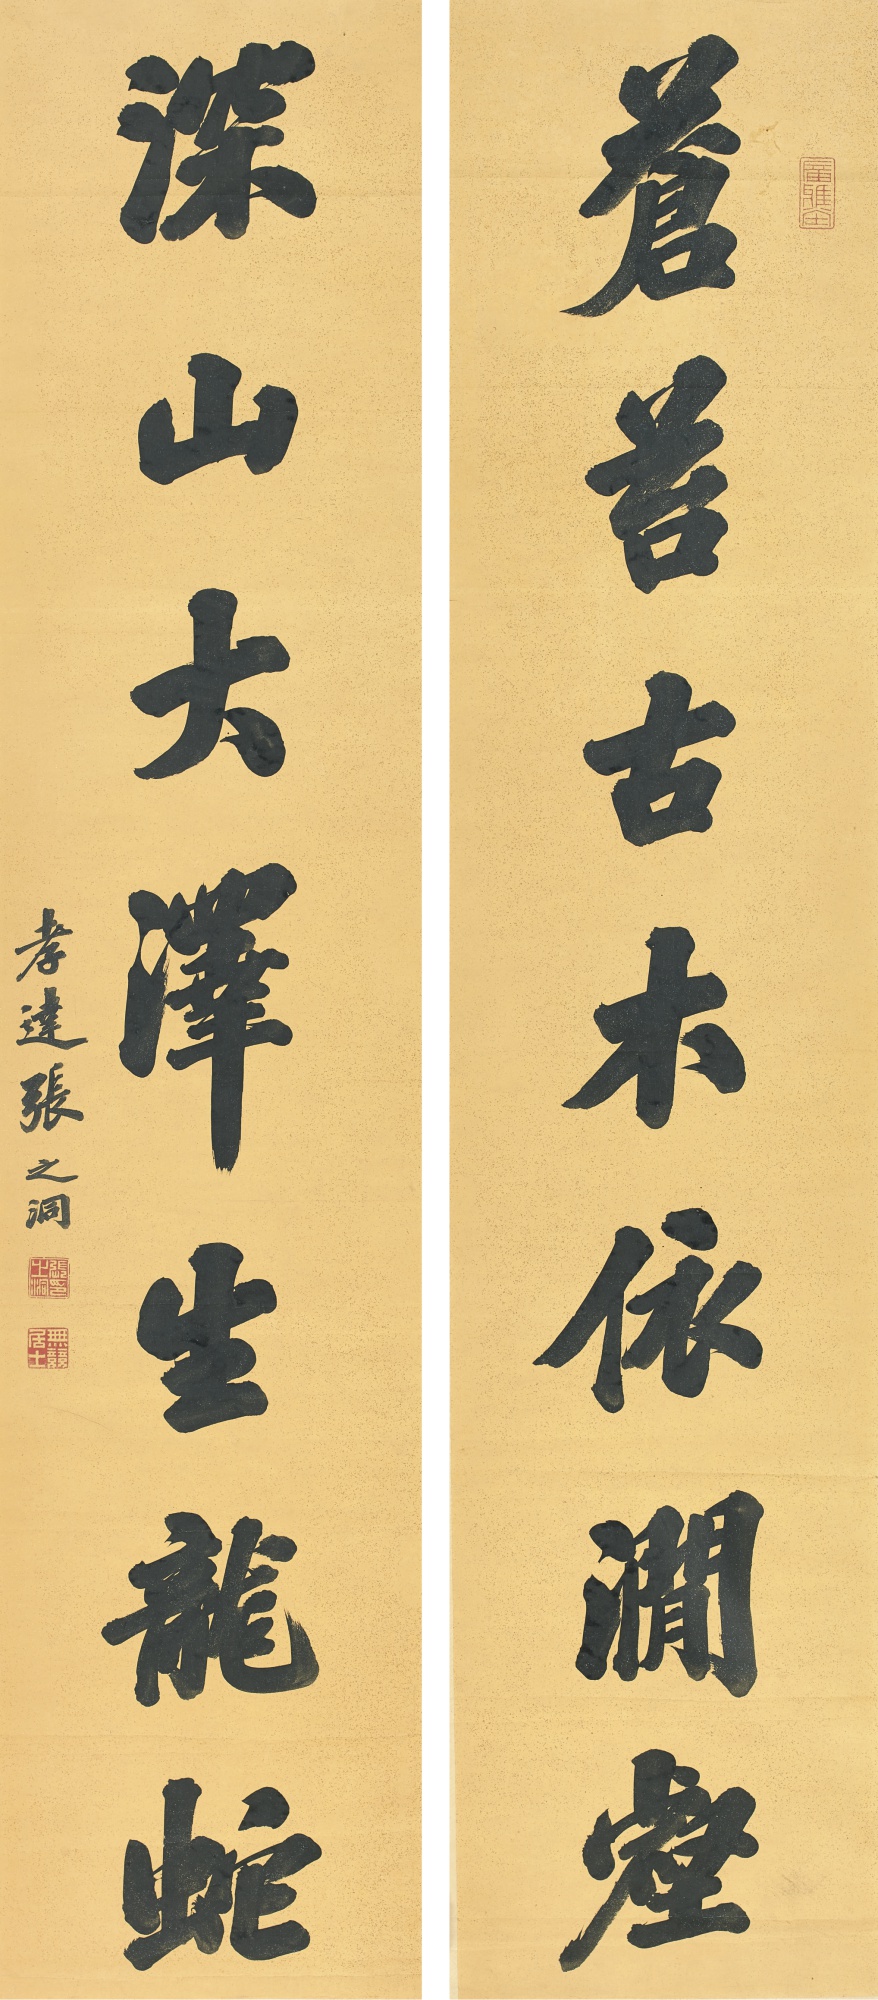 蒼苔古木依澗壑
深山大澤生龍蛇
孝達張之洞
張印之洞
無競居士